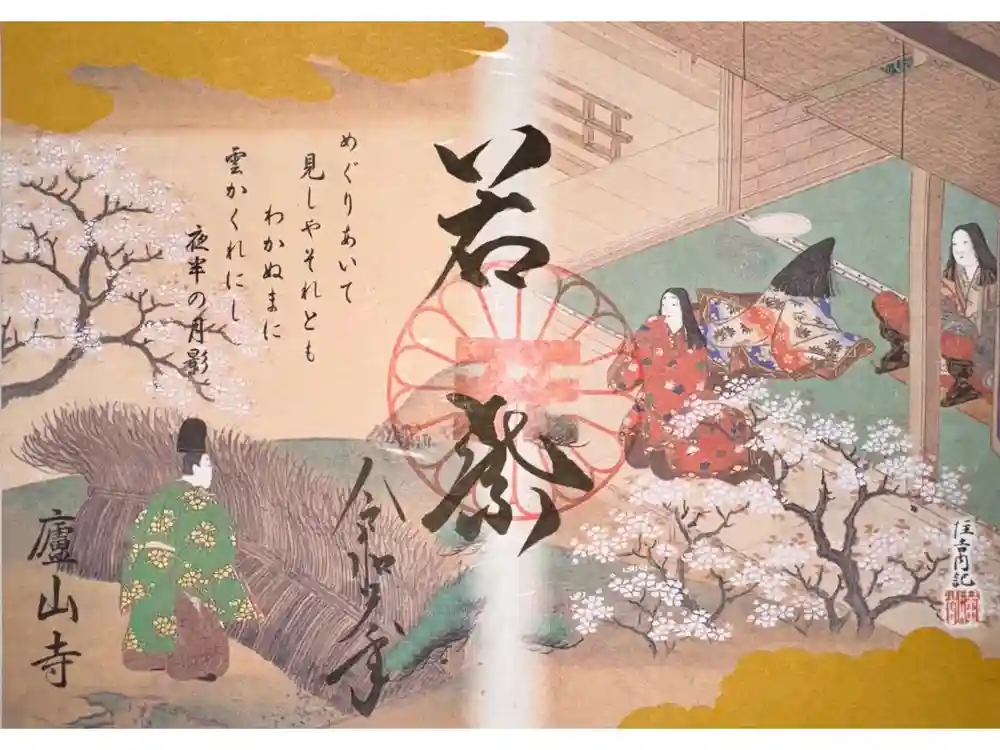 若紫
めぐりあいて
見しやそれとも
わかぬまに
雲かくれにし
夜半の月影
令和 年
廬山寺
住吉内記